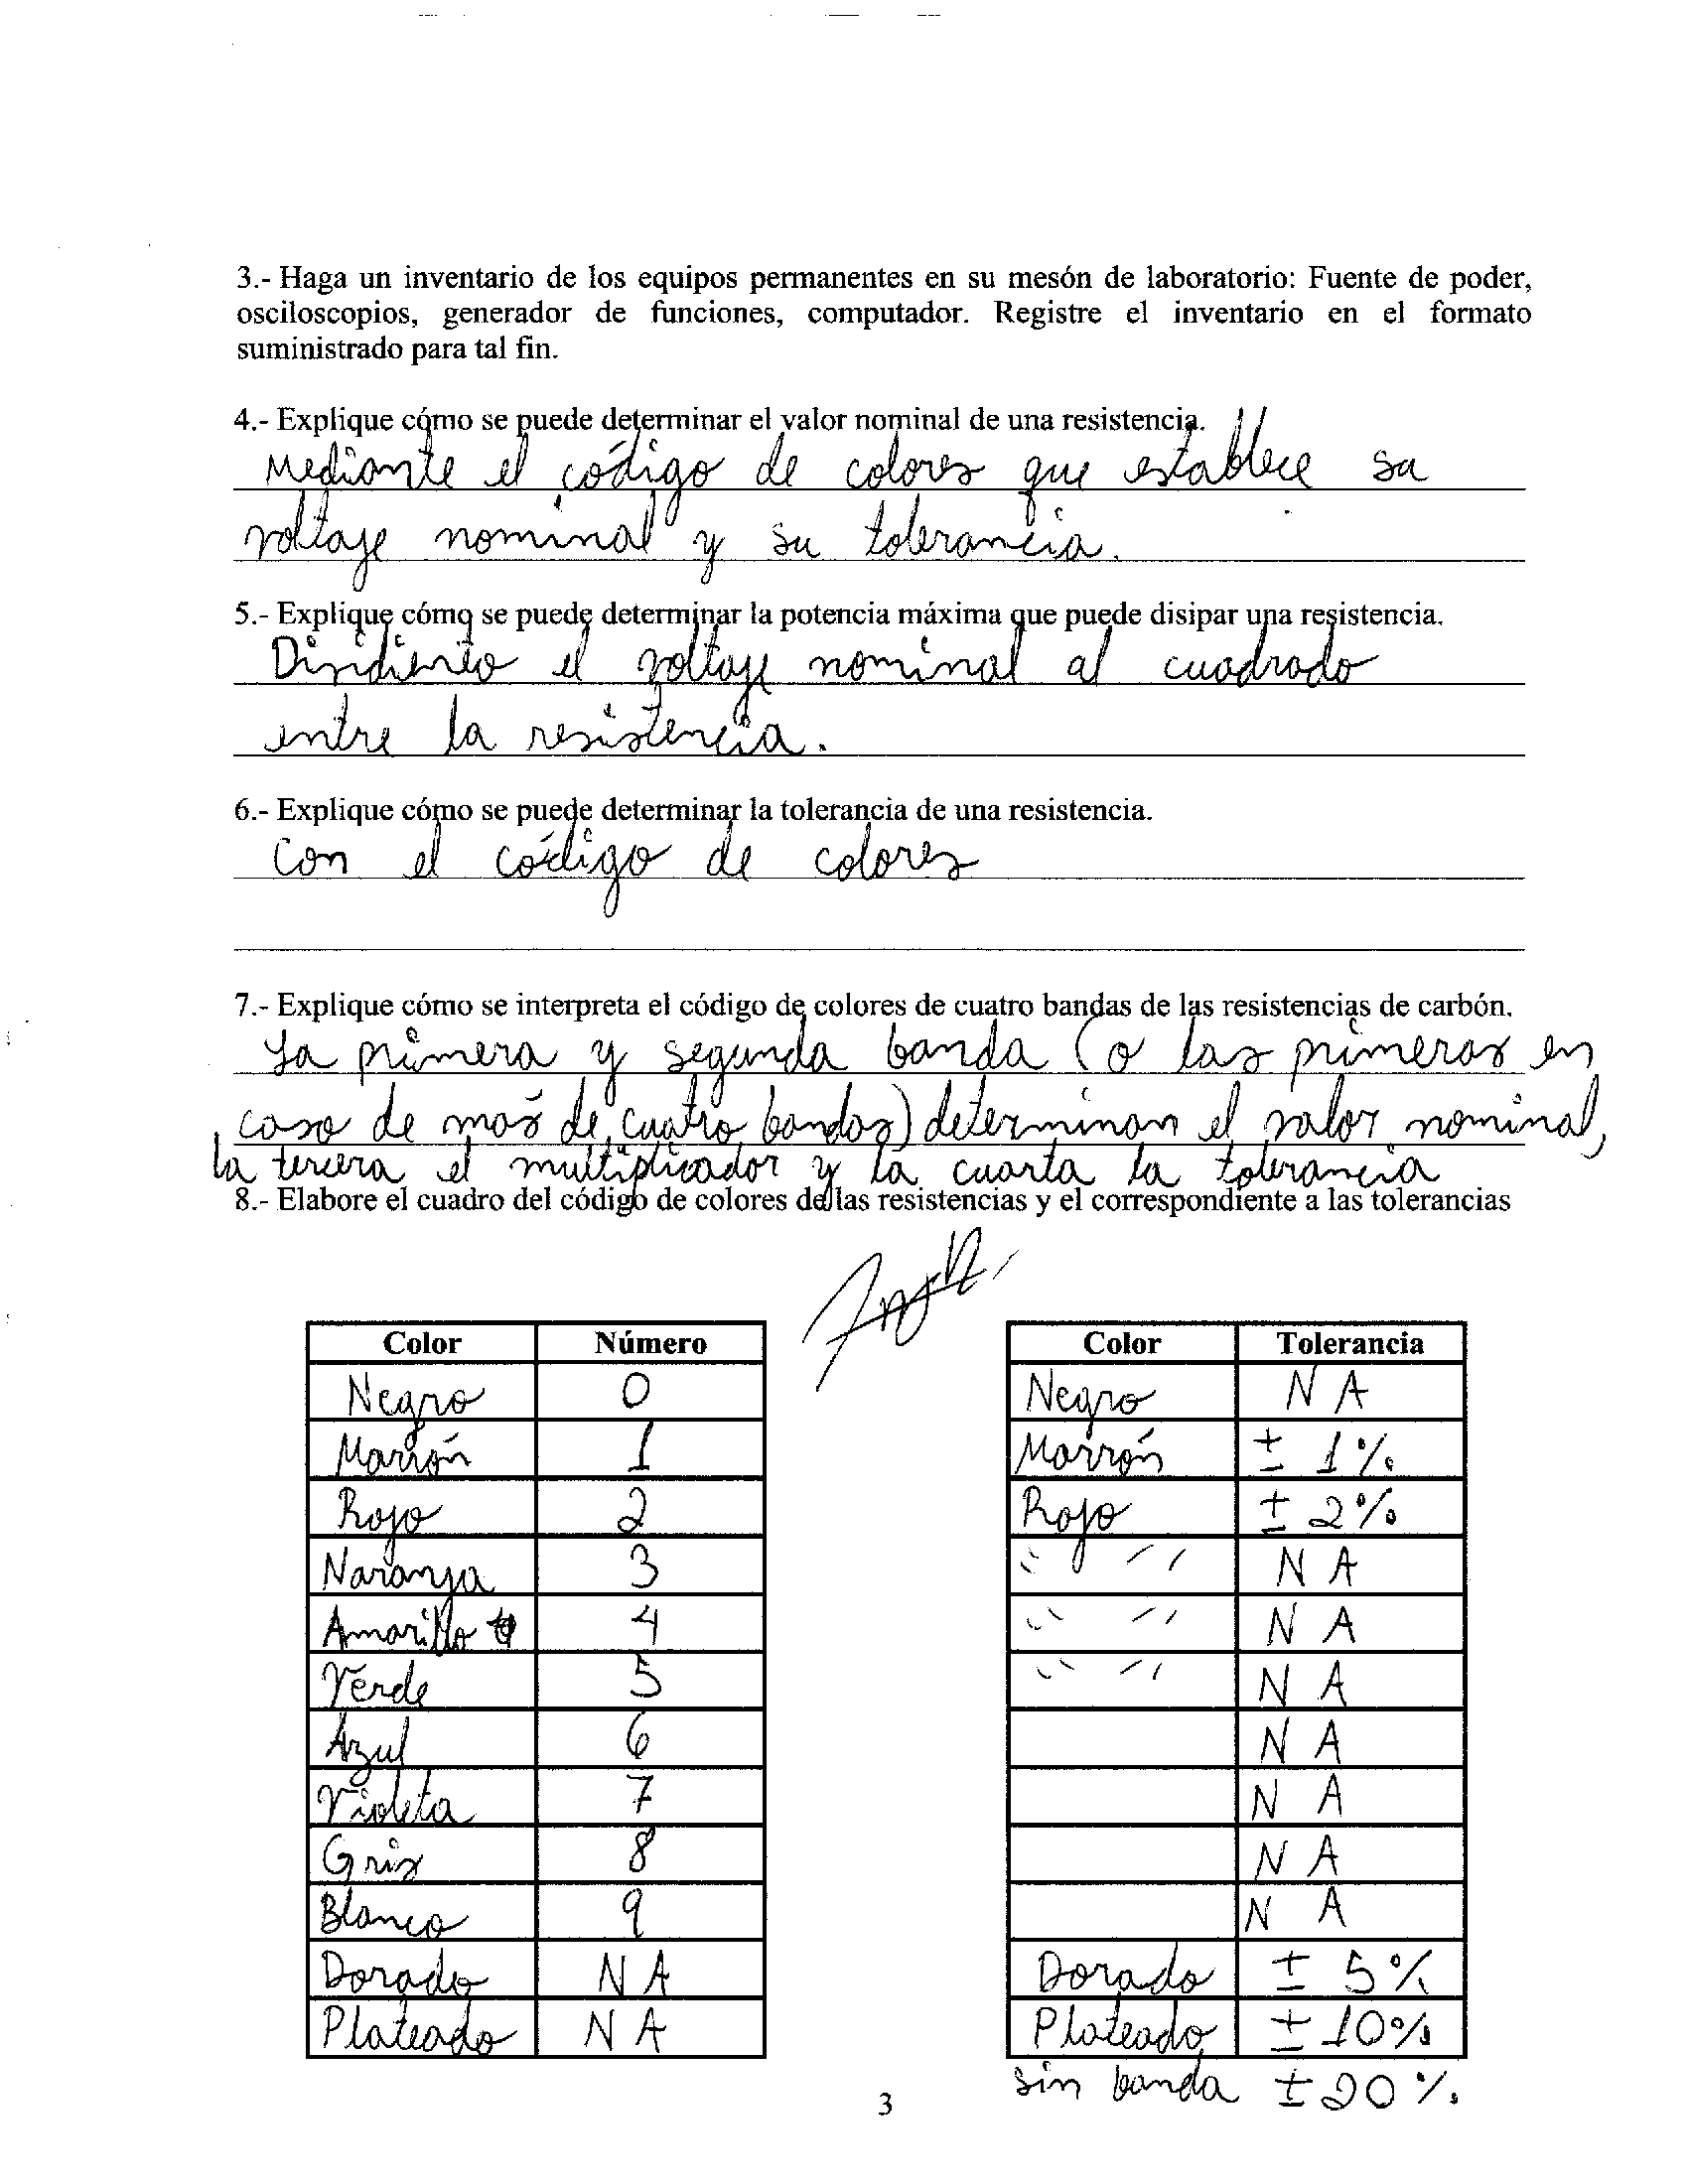 3.- Haga un inventario de los equipos permanentes en su mesón de laboratorio: Fuente de poder,
osciloscopios, generador de funciones, computador. Registre el inventario en el formato
suministrado para tal fin.
4.- Explique cómo se puede determinar el valor nominal de una resistencia.
Mediante el código de colores que establece su
voltaje nominal y su tolerancia.
5.- Explique cómo se puede determinar la potencia máxima que puede disipar una resistencia.
Dividiento el voltaje nominal al cuadrado
entre la resistencia.
6.- Explique cómo se puede determinar la tolerancia de una resistencia.
Con el código de colores
7.- Explique cómo se interpreta el código de colores de cuatro bandas de las resistencias de carbón.
La primera y segunda banda (o las primeras en
caso de más de cuatro bandas) determinan el valor nominal,
la tercera el multiplicador y la cuarta la tolerancia
8.- Elabore el cuadro del código de colores de las resistencias y el correspondiente a las tolerancias
Color Número Color Tolerancia
Negro 0 Negro N A
Marrón 1 Marrón ± 1%
Rojo 2 Rojo ± 2%
Naranja 3 " " N A
Amarillo 4 " " N A
Verde 5 " " N A
Azul 6 N A
Violeta 7 N A
Gris 8 N A
Blanco 9 N A
Dorado NA Dorado ± 5%
Plateado NA Plateado ± 10%
sin banda ± 20%
3